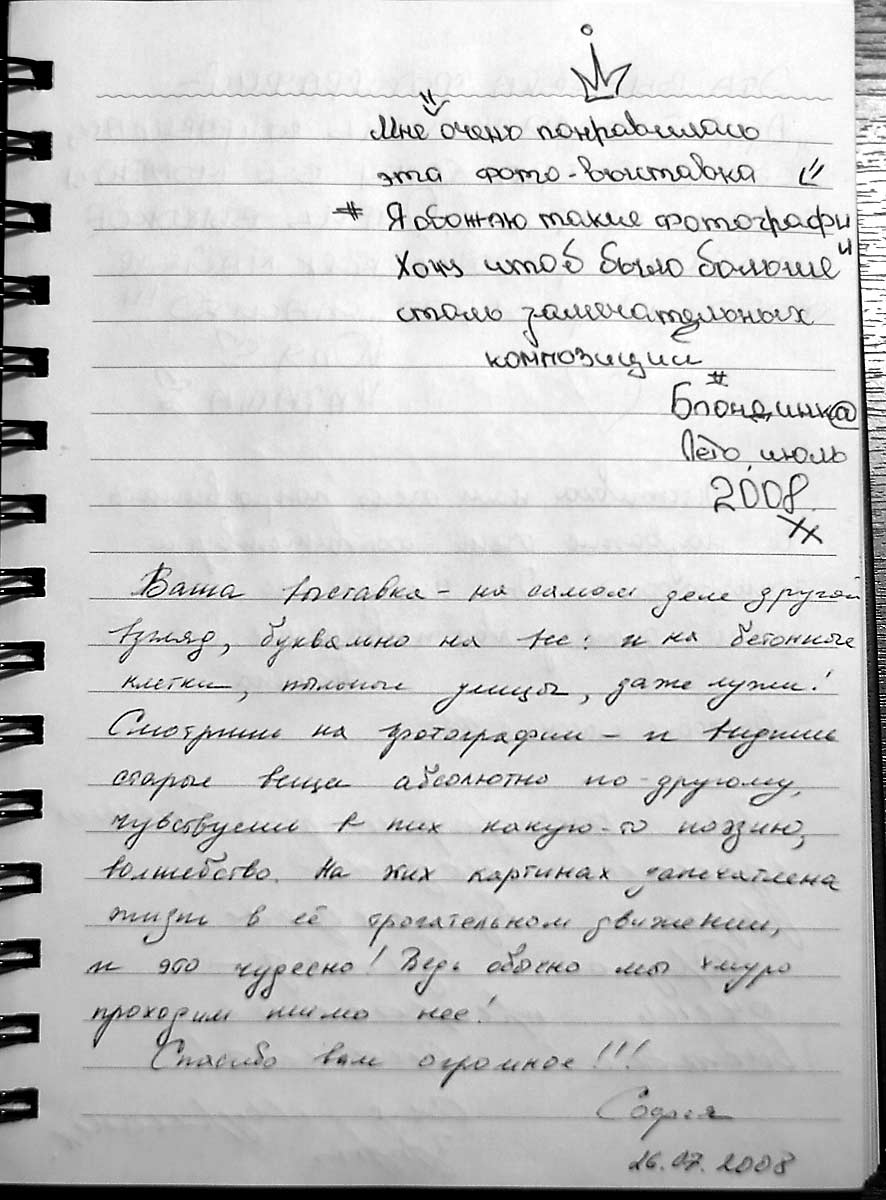 Мне очень понравилась
эта фото-выставка
# Я обожаю такие фотографии
Хочу чтоб было больше
столь замечательных
композиций
Блондинк@
Лето, июль
2008
Ваша выставка – на самом деле другой
взгляд, буквально на все: и на бетонные
клетки, пыльные улицы, даже лужи!
Смотришь на фотографии – и видишь
старые вещи абсолютно по-другому,
чувствуешь в них какую-то поэзию,
волшебство. На этих картинах запечатлена
жизнь в её трогательном движении,
и это чудесно! Ведь обычно мы хмуро
проходим мимо нее!
Спасибо вам огромное!!!
София
26.07.2008